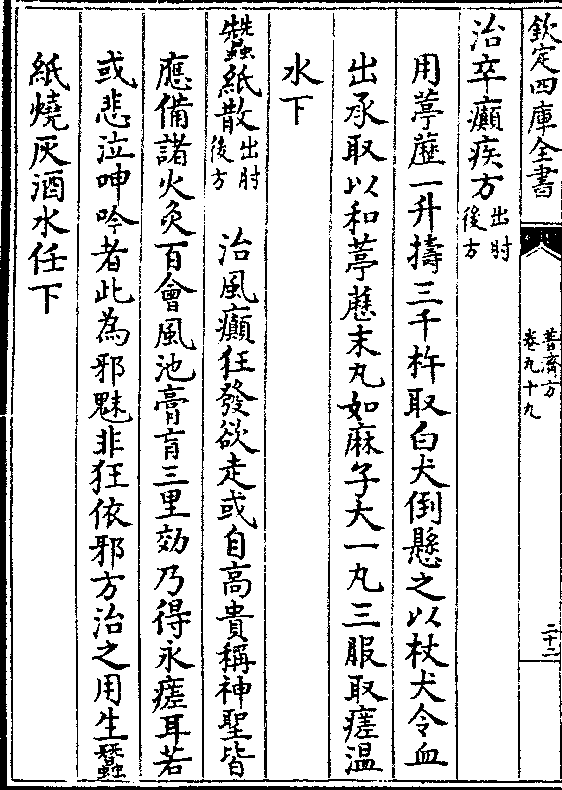 欽定四庫全書
普濟方
卷九十九
二十二
治卒癲疾方
出肘
後方
用葶藶一升擣三千杵取白犬倒懸之以杖犬令血
出承取以和葶藶末丸如麻子大一丸三服取瘥温
水下
蠶紙散
出肘
後方
治風癲狂發欲走或自高貴稱神聖皆
應備諸火灸百會風池膏肓三里効乃得永瘥耳若
或悲泣呻吟者此為邪魅非狂依邪方治之用生蠶
紙燒灰酒水任下